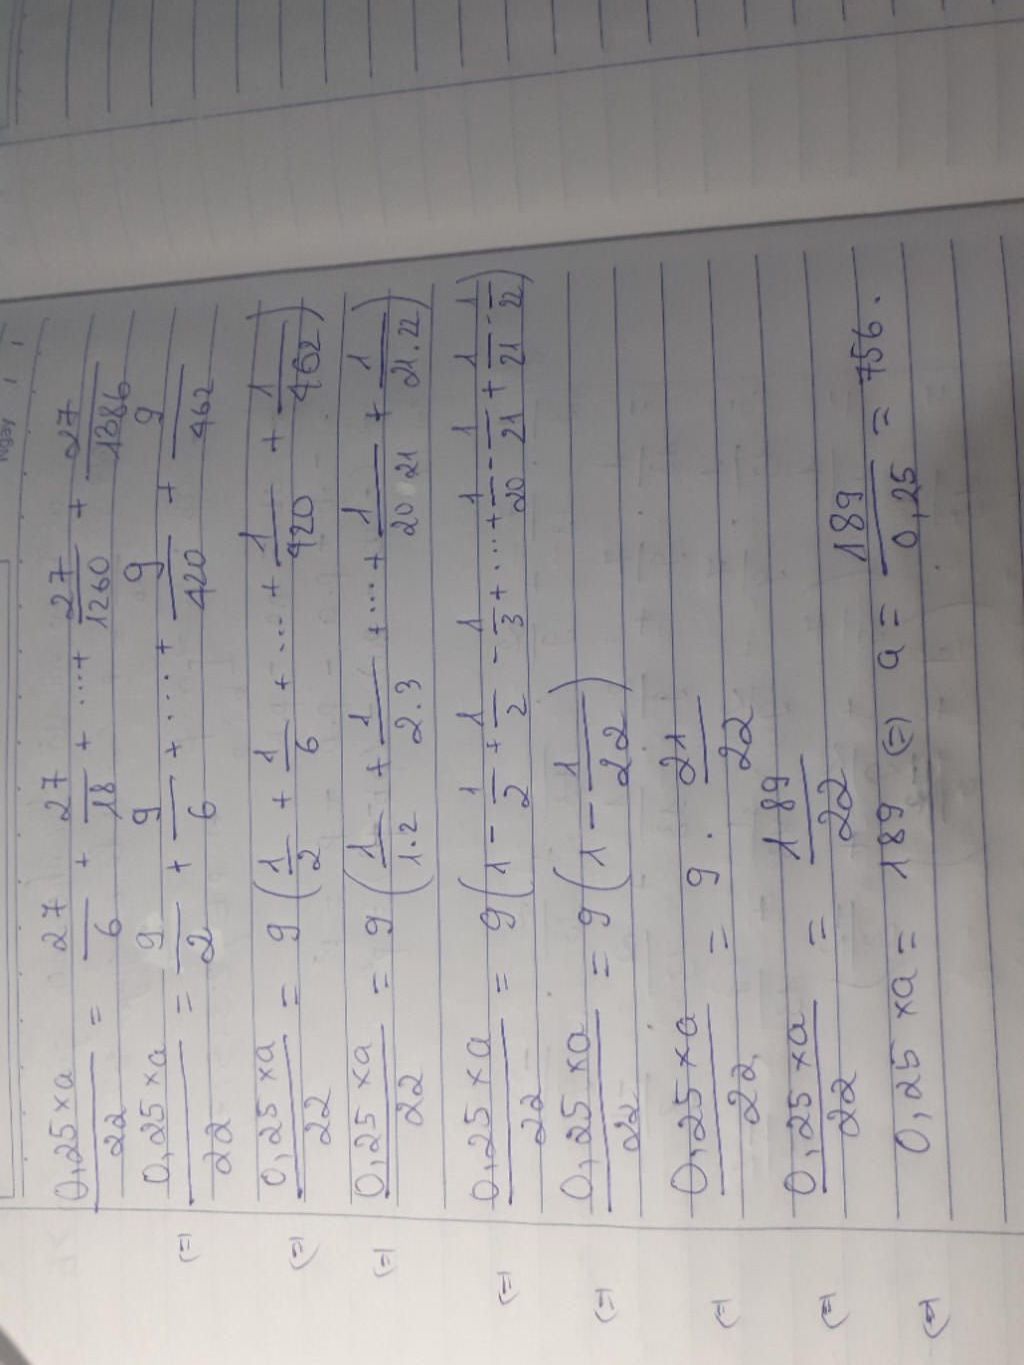 Ngày / /
0,25 × a / 22 = 27/6 + 27/18 + ... + 27/1260 + 27/1386
(=) 0,25 × a / 22 = 9/2 + 9/6 + ... + 9/420 + 9/462
(=) 0,25 × a / 22 = 9 (1/2 + 1/6 + ... + 1/420 + 1/462)
(=) 0,25 × a / 22 = 9 (1/1.2 + 1/2.3 + ... + 1/20 21 + 1/21.22)
(=) 0,25 × a / 22 = 9 (1 - 1/2 + 1/2 - 1/3 + ... + 1/20 - 1/21 + 1/21 - 1/22)
(=) 0,25 × a / 22 = 9 (1 - 1/22)
(=) 0,25 × a / 22 = 9 . 21/22
(=) 0,25 × a / 22 = 189/22
(=) 0,25 × a = 189 (=) a = 189/0,25 = 756.